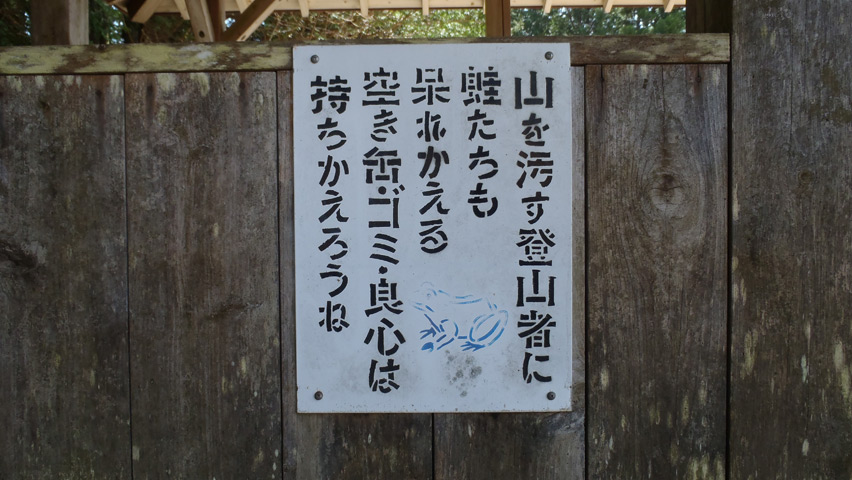 山を汚す登山者に
蛙たちも
呆れかえる
空き缶・ゴミ・良心は
持ちかえろうね